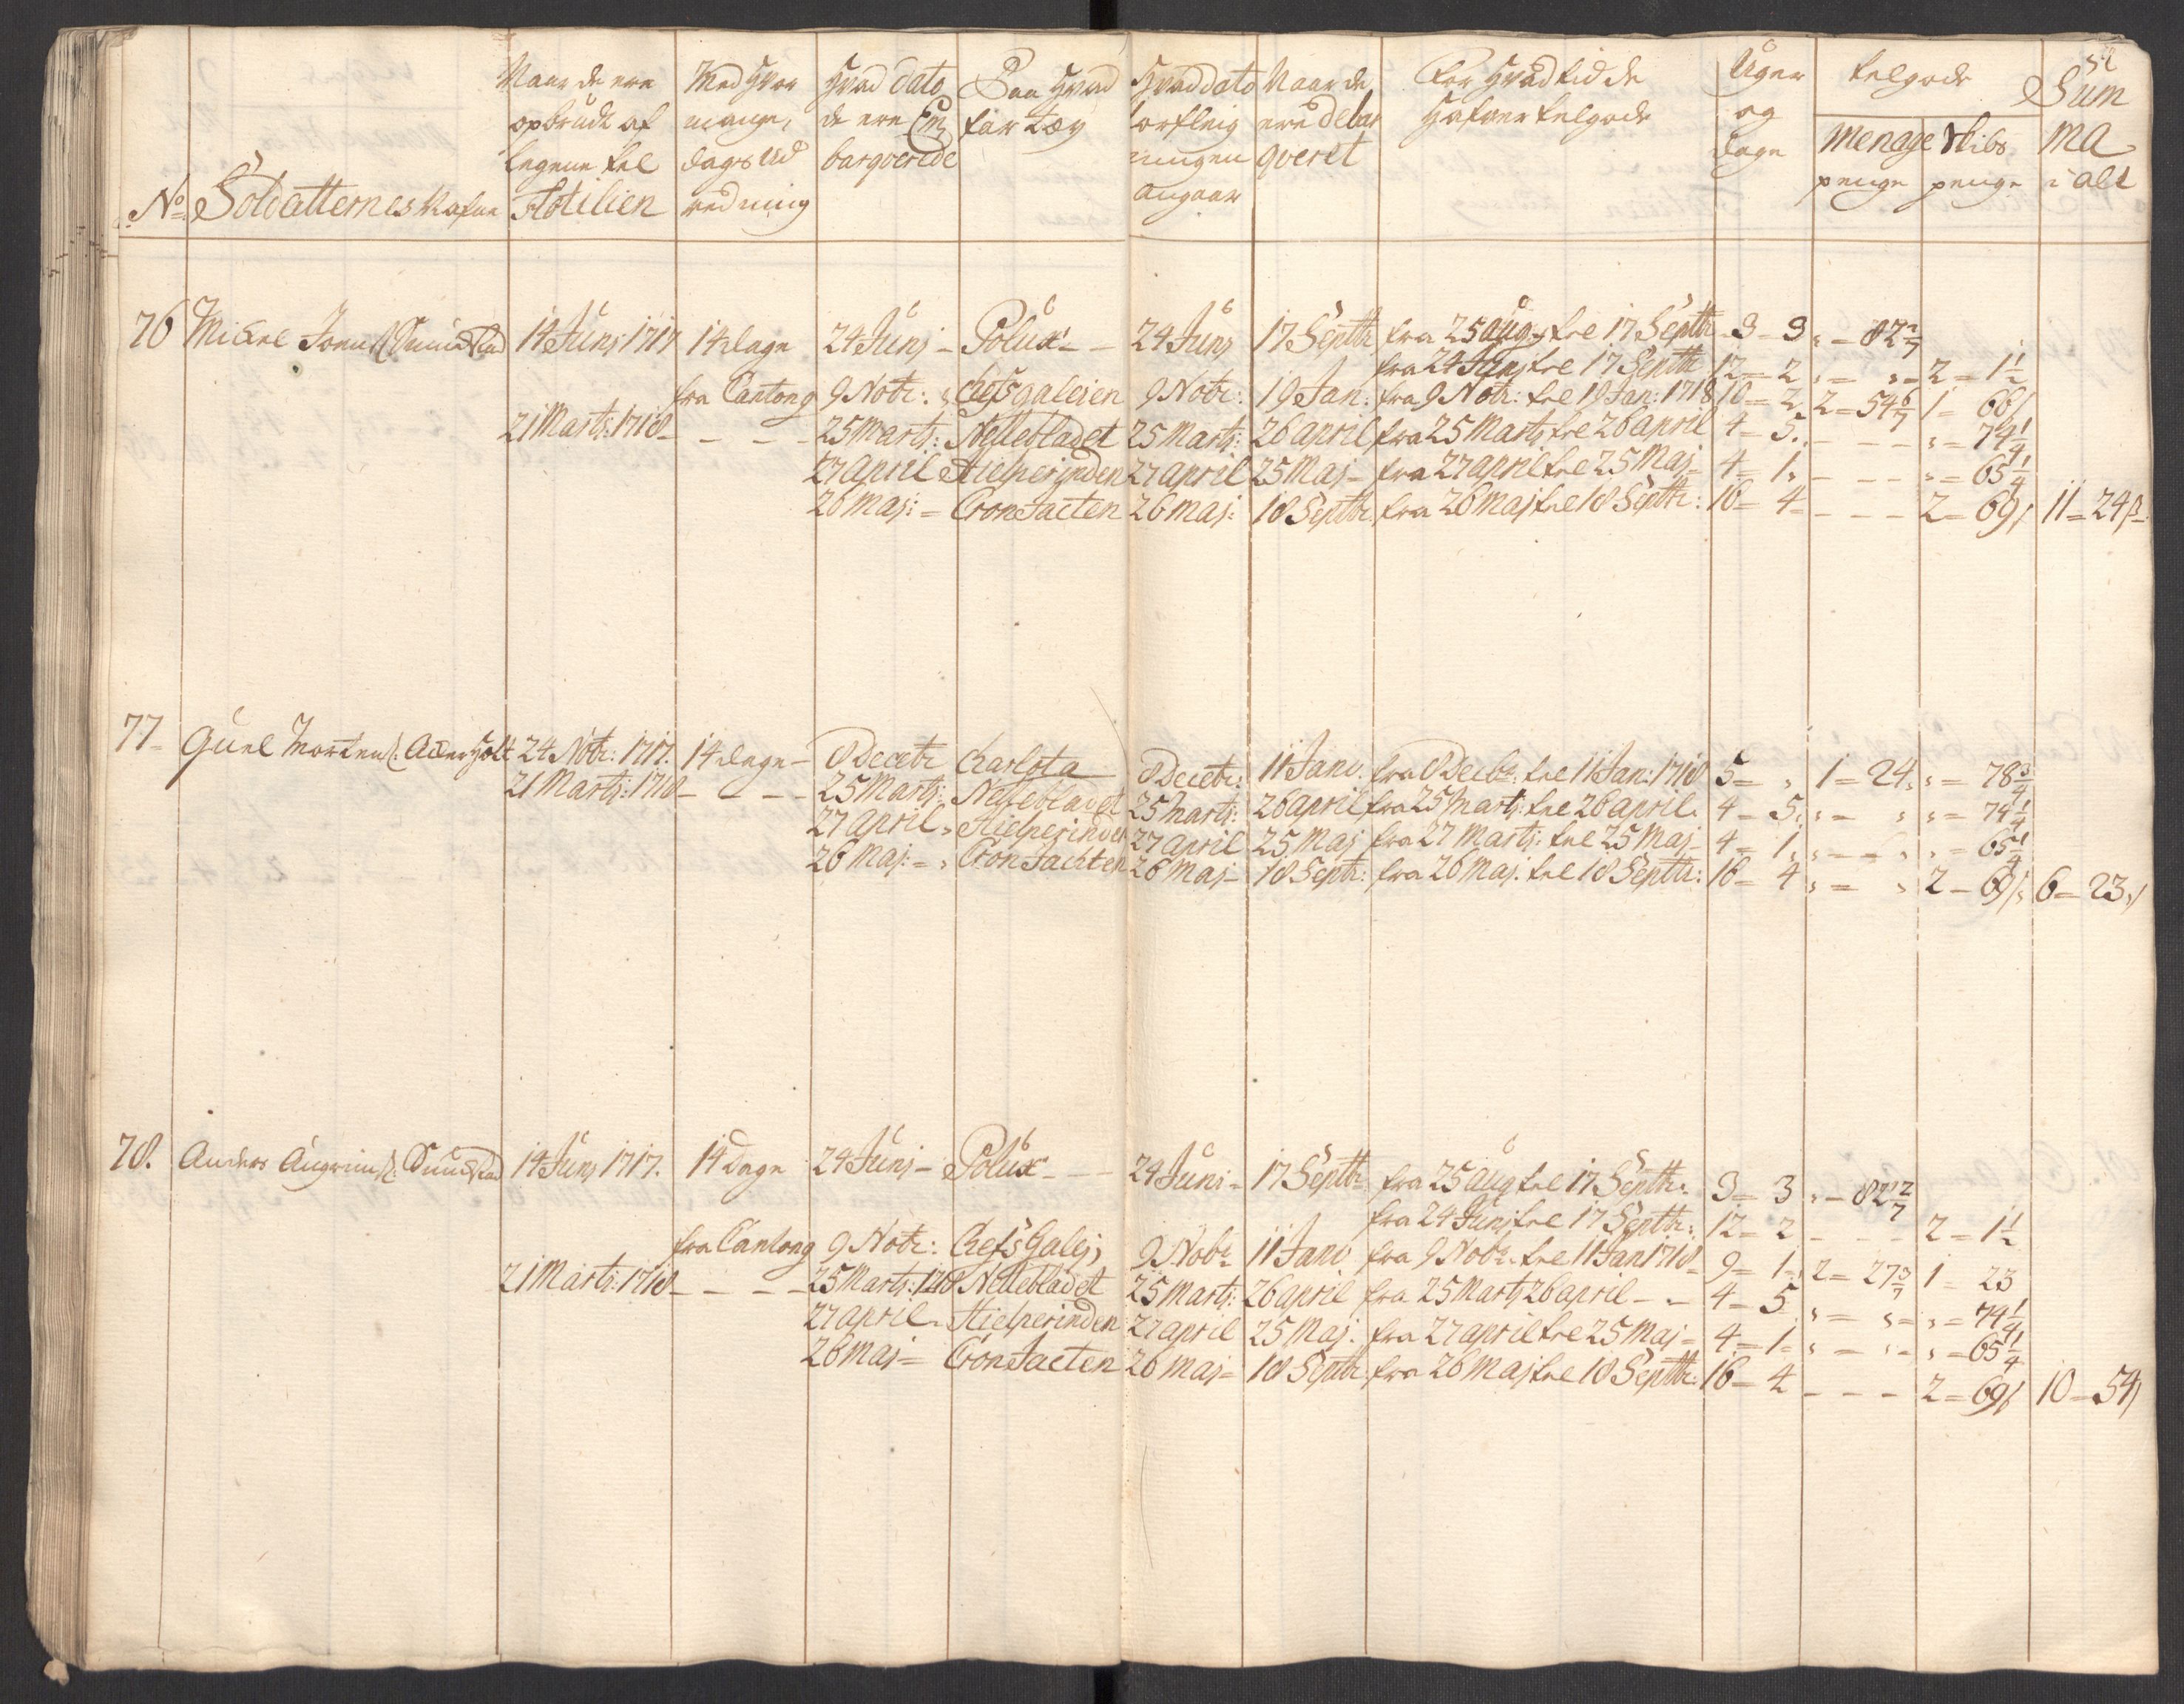 52
No Soldatternes Nafne
Naar de ere opbrudt af legene til Flotilien
Med hvor mange dags Ud redning
Hvad dato de ere Em barqverede
Paa hvad far tøy
Hvad dato forfleig ningen angaar
Naar de ere debar qveret
For hvad tid de hafver tilgode
Uger og dage
tilgode
Menage penge
Skibs penge
Sum ma i alt
76 Mickel Joens: 14 Junj 1717 14 dage 24 Junj - Polux - 24 Junj 17 Septbr fra 25 Aug: til 17 Septbr 3 - 3 " - 82 2/7
fra 24 Junj til 17 Septbr 12 = 2 " = " = 2 = 1 1/2
fra Cantong 9 Nobr: Chefs galeien 9 Nobr: 19 Jan: fra 9 Nobr: til 19 Jan: 1718 10 = 2 2 = 54 6/7 1 = 66
21 Marts: 1718 - - - 25 Marts: Nellebladet 25 Marts: 26 april fra 25 Marts til 26 april 4 = 5 - - - " = 74 1/4
27 april Hielperinden 27 april 25 Maj - fra 27 april til 25 Maj - 4 = 1 - - - " = 65 1/4
26 maj: = Cron Jacten 26 maj: 18 Septbr fra 26 Maj til 18 Septbr: 16 = 4 - - - 2 = 69 11 = 24 ß
77 Morten: 24 Nobr: 1717. 14 dage - 8 Decebr Charlota 8 Decebr: 11 Janv. fra 8 Decbr: til 11 Jan: 1718 5 = " 1 = 24 " = 78 3/4
21 Marts: 1718 - - - 25 Marts: Nellebladet 25 Marts: 26 april fra 25 Marts: til 26 april 4 - 5 " - " " = 74 1/4
27 april " Hielperinden 27 april 25 Maj fra 27 Marts: til 25 Maj - 4 - 1 " - - " " = 65 1/4
26 Maj: = " Cron Jachten 26 Maj - 18 Septr: fra 26 Maj: til 18 Septbr: 16 - 4 " = " 2 - 69 6 - 23
78. Anders 14 Junj 1717. 14 Dage 24 Junj - Polux - - 24 Juni - 17 Septbr fra 25 Aug til 17 Septbr: 3 = 3 " - 82 2/7
fra 24 Junj til 17 Septbr: 12 = 2 - - - 2 = 1 1/2
fra Cantong 9 Nobr: Chefs Galej 9 Nobr 11 Janv fra 9 Nobr: til 11 Jan 1718 - 9 = 1 = 2 = 27 3/7 1 = 23
21 Marts: 1718 - - - 25 Marts: 1718 Nellebladet 25 Marts: 26 april fra 25 Marts 26 april - - 4 - 5 " = " = " = 74 1/4
27 april - Hielperinden 27 april 25 Maj: fra 27 april til 25 Maj = 4 = 1 = " = " = " = 65 1/4
26 maj = Cron Jacten 26 maj = 18 Septbr fra 26 Maj til 18 Septbr: 16 = 4 - - - 2 = 69 10 - 54